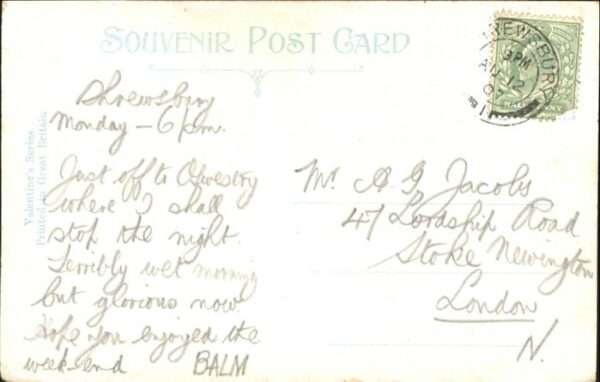 SOUVENIR POST CARD
Shrewsbury
Monday - 6 pm.
Just off to Oswestry
where I shall
stop the night.
Terribly wet morning
but glorious now
Hope you enjoyed the
week-end BALM
Valentine's Series.
Printed in Great Britain
Mr. A G Jacobs
47 Lordship Road
Stoke Newington
London
N.
REWSBURY
3 PM
AU 12